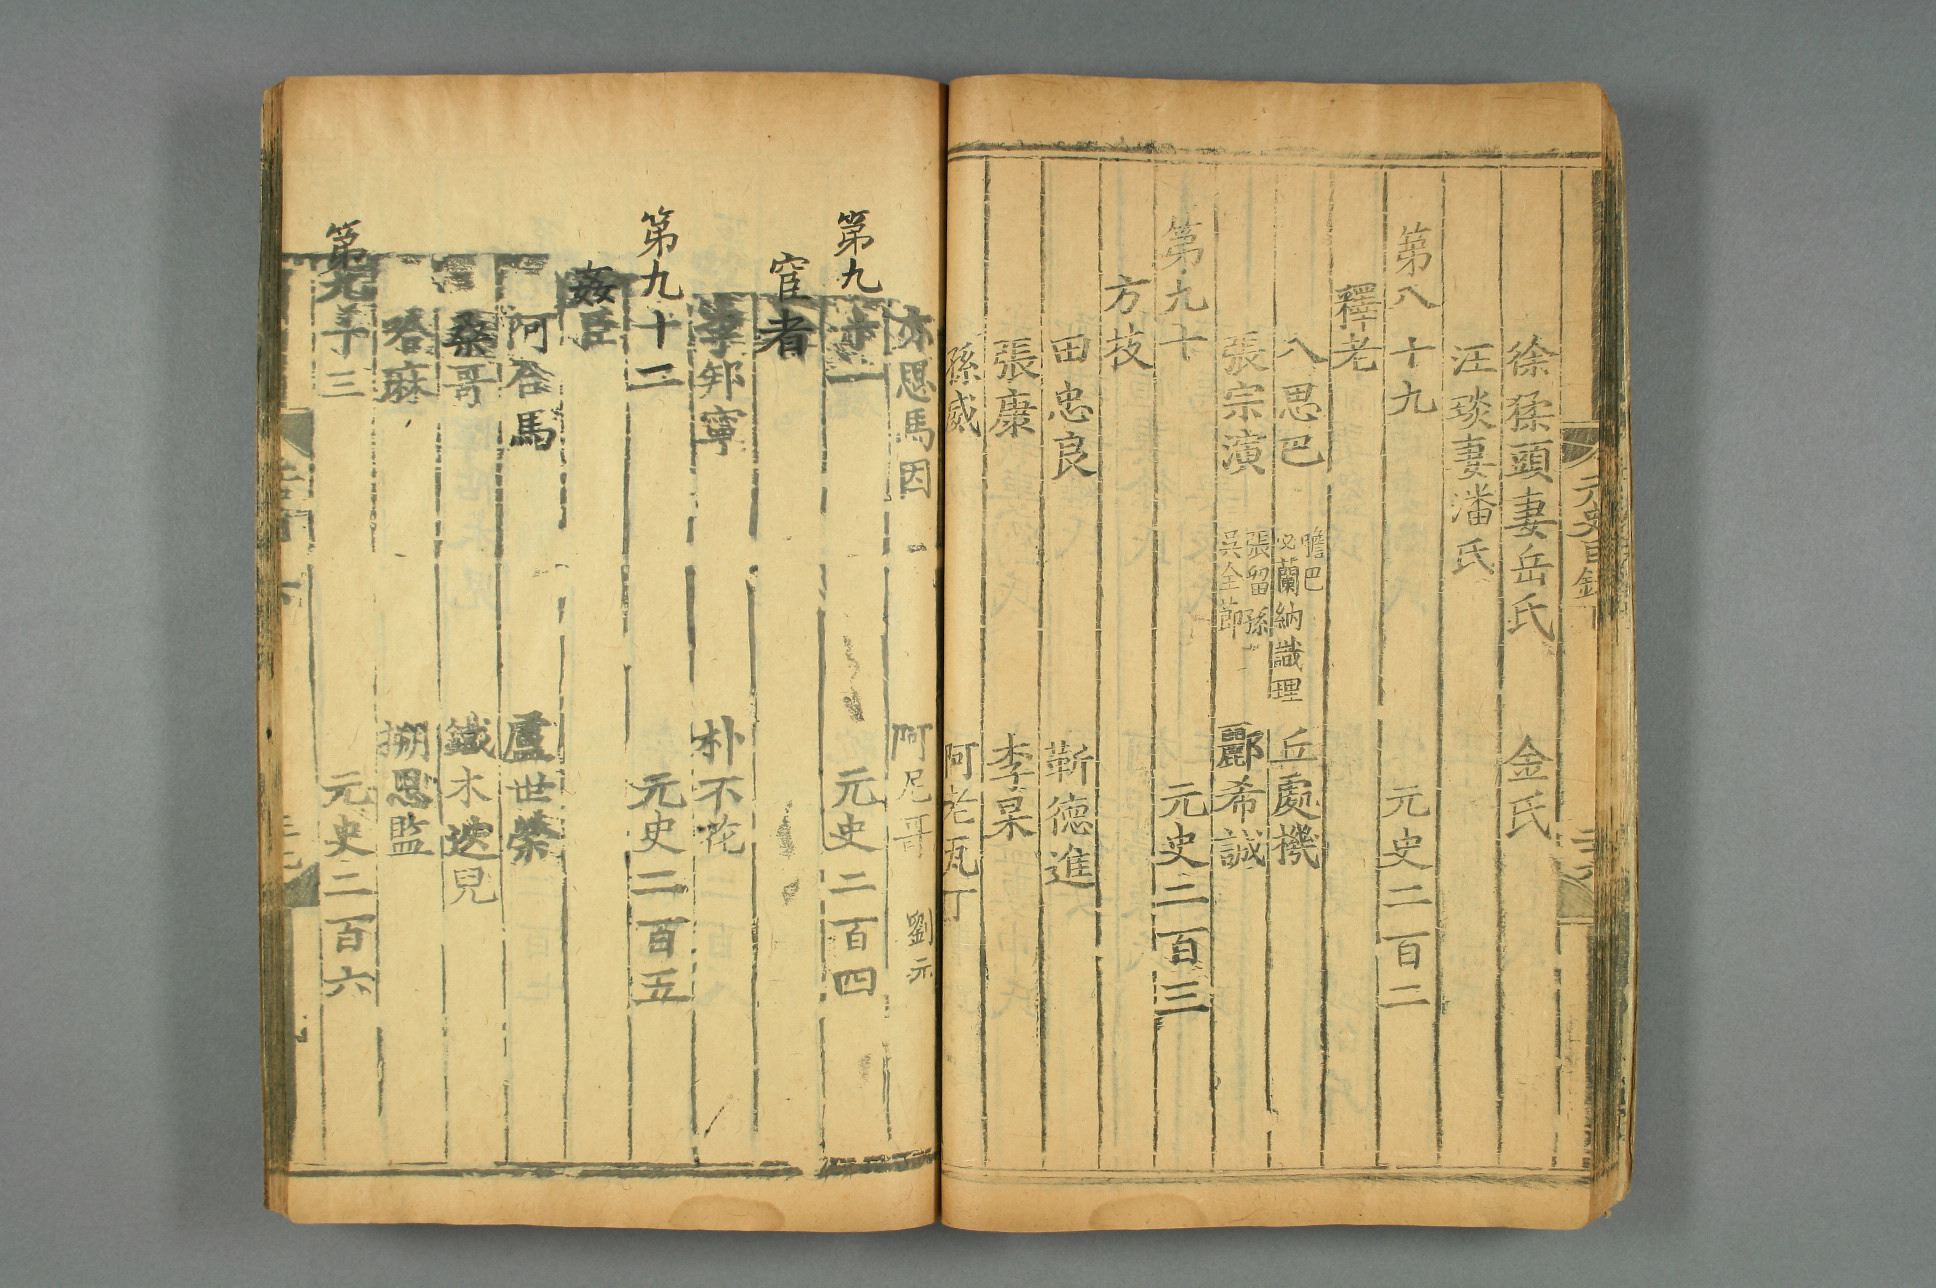 元史目錄下
徐猱頭妻岳氏 金氏
汪琰妻潘氏
第八十九 元史二百二
釋老
八思巴 膽巴 必蘭納識理 丘處機
張宗演 張留孫 吳全節 酈希誠
第九十 元史二百三
方技
田忠良 靳德進
張康 李杲
孫威 阿老瓦丁
亦思馬因 阿尼哥 劉元
第九 一 元史二百四
宦者
李邦寧 朴不花
第九十二 元史二百五
姦臣
阿合馬 盧世榮
桑哥 鐵木迭兒
哈麻 搠思監
第九十三 元史二百六